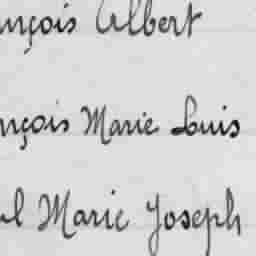 nçois Albert
nçois Marie Louis
l Marie Joseph